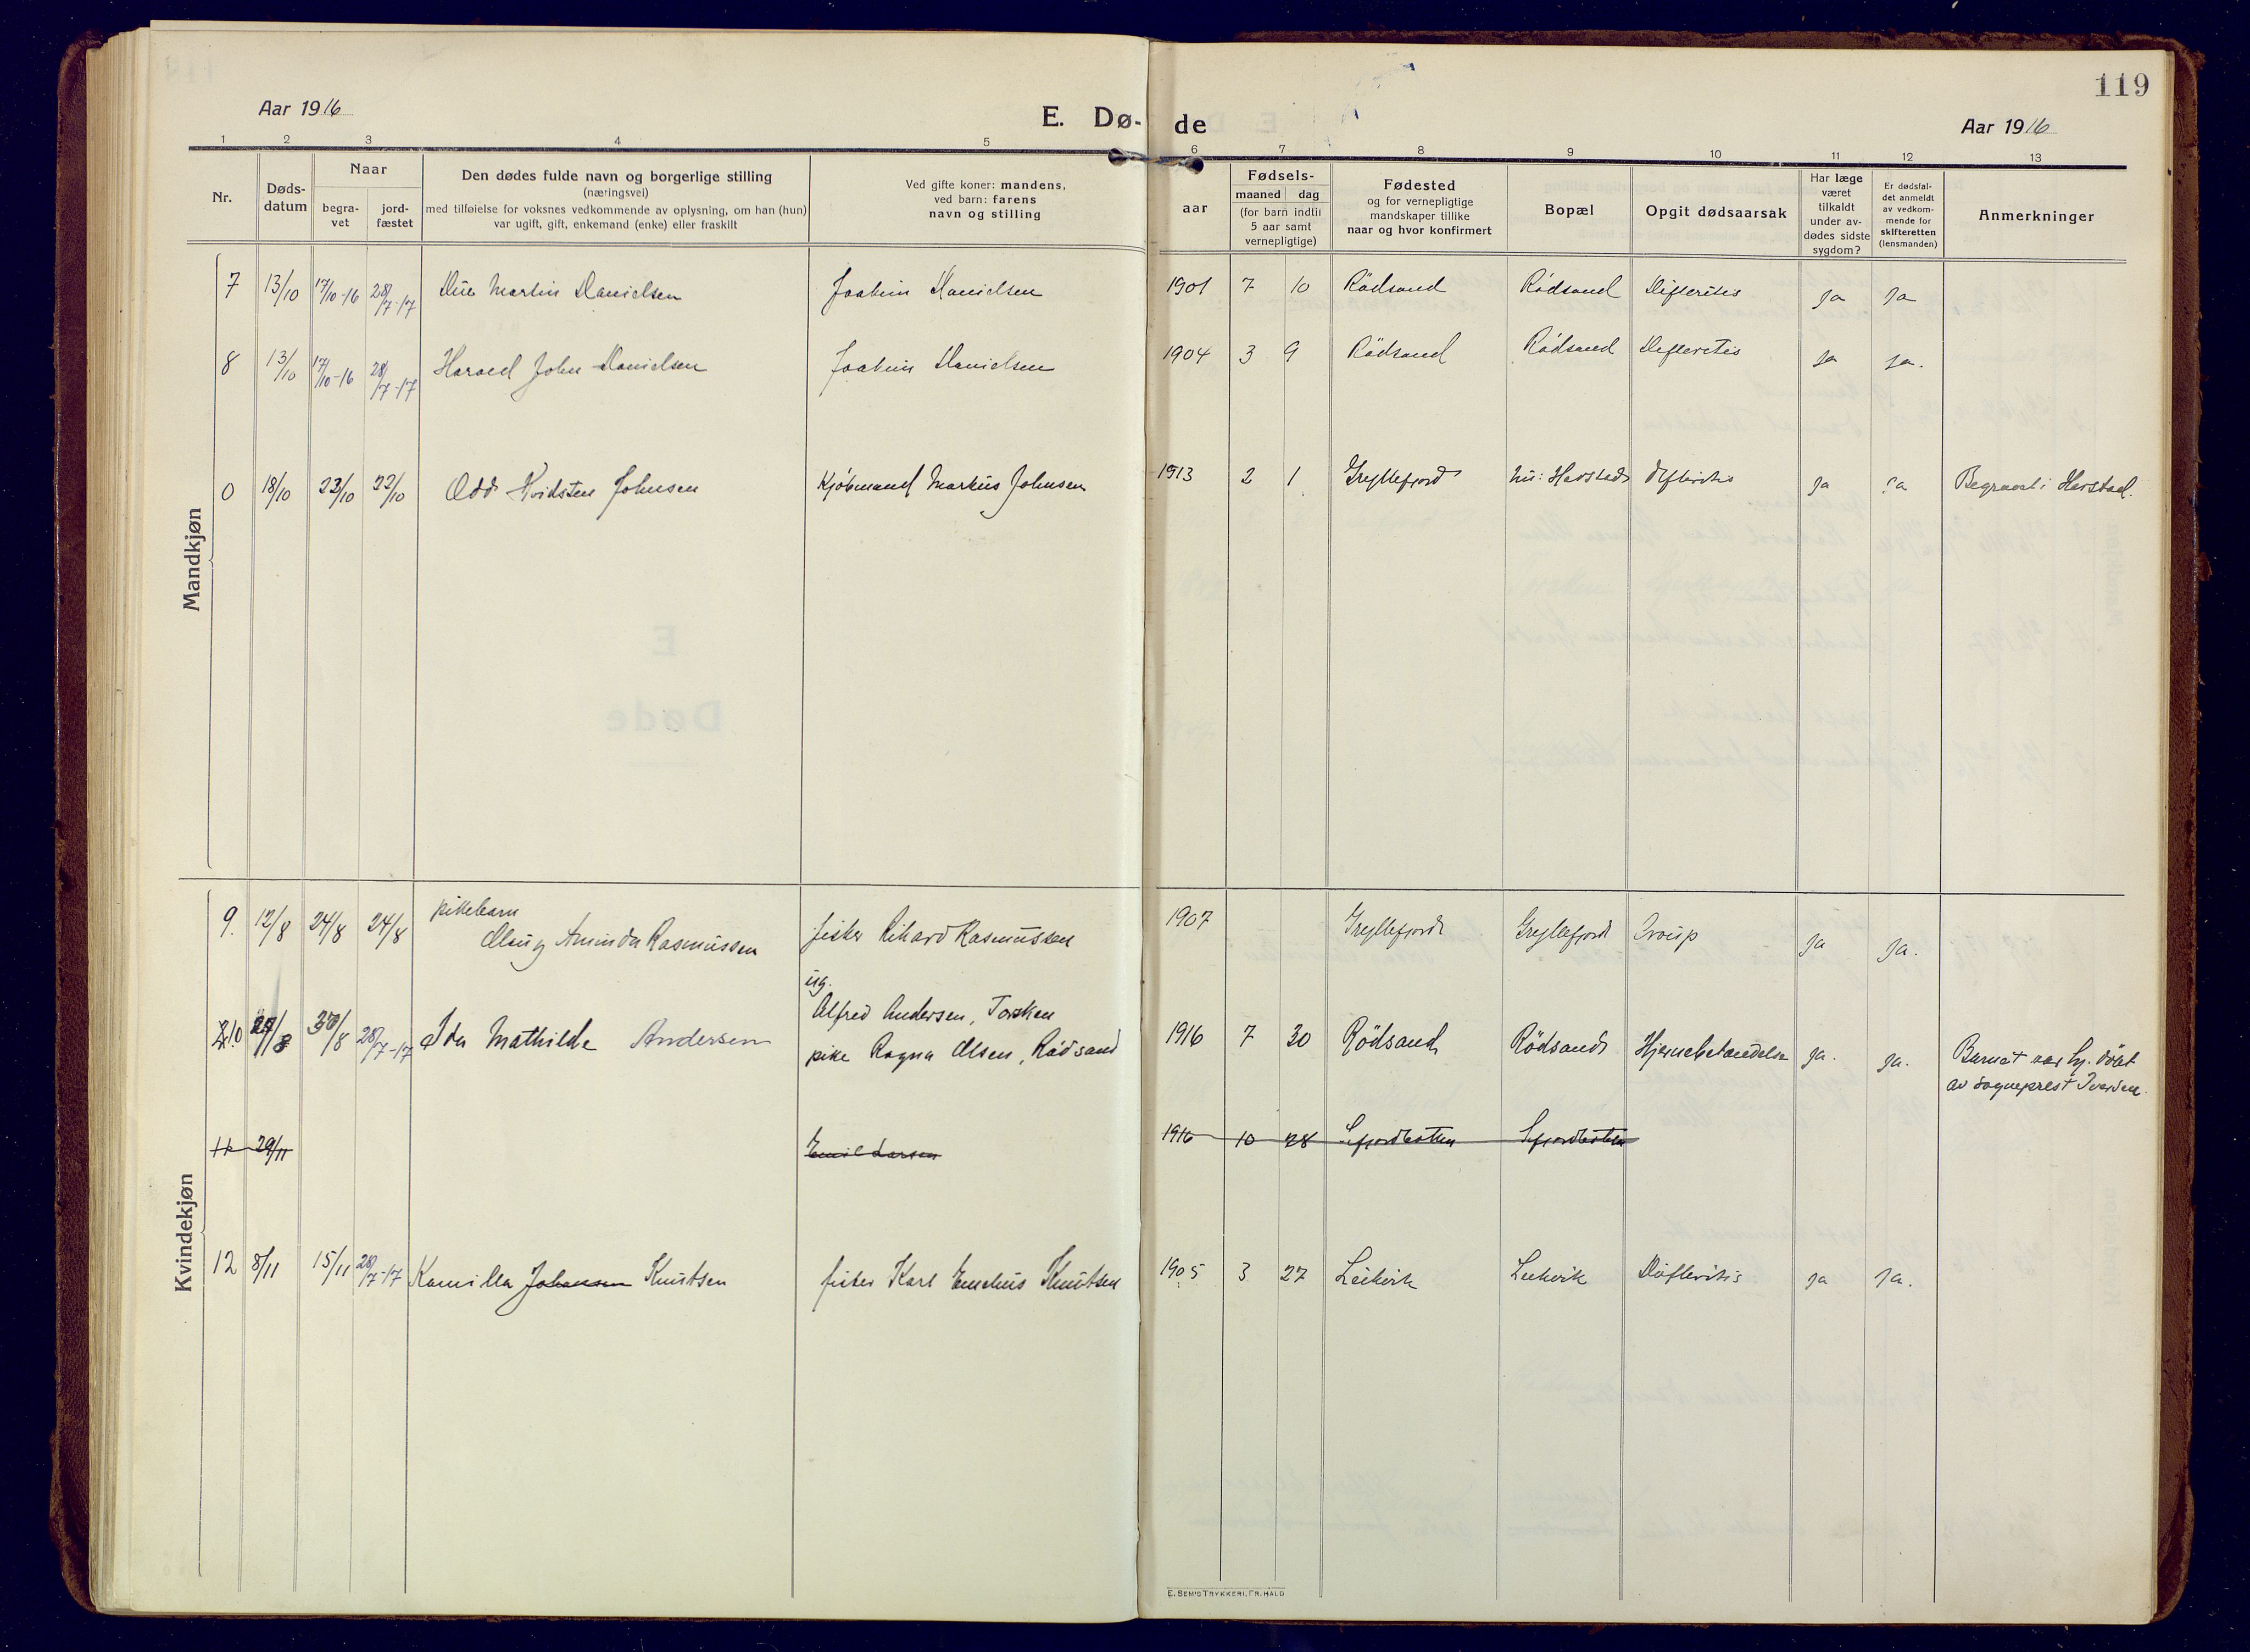 119
Aar 1916
E. Dø- de
Aar 1916
1 2 3 4 5 6 7 8 9 10 11 12 13
Nr.
Døds-
datum
Naar
begra-
vet
jord-
fæstet
Den dødes fulde navn og borgerlige stilling
(næringsvei)
med tilføielse for voksnes vedkommende av oplysning, om han (hun)
var ugift, gift, enkemand (enke) eller fraskilt
Ved gifte koner: mandens,
ved barn: farens
navn og stilling
aar
Fødsels-
maaned dag
(for barn indtil
5 aar samt
vernepligtige)
Fødested
og for vernepligtige
mandskaper tillike
naar og hvor konfirmert
Bopæl
Opgit dødsaarsak
Har læge
været
tilkaldt
under av-
dødes sidste
sygdom?
Er dødsfal-
det anmeldt
av vedkom-
mende for
skifteretten
(lensmanden)
Anmerkninger
Mandkjøn
7 13/10 17/10-16 28/7-17 Martin Danielsen Joakim Danielsen 1901 7 10 Rödsand Rödsand Difteritis ja ja
8 13/10 17/10-16 28/7-17 Harald John Danielsen Joakim Danielsen 1904 3 9 Rödsand Rödsand Difteritis ja ja.
0 18/10 23/10 22/10 Odd Kvidsten Johnsen Kjöbmand Markus Johnsen 1913 2 1 Gryllefjord nu: Harstad Difteritis ja ja Begravet i Harstad.
Kvindekjøn
pikebarn
9. 12/8 24/8 24/8 Aminda Rasmussen fisker Rikard Rasmussen 1907 Gryllefjord Gryllefjord Croup ja ja.
ug.
Alfred Andersen, Torsken
10 27/8 30/8 28/7-17 Ida Mathilde Andersen pike Ragna Olsen, Rödsand 1916 7 30 Rödsand Rödsand Hjernebetændelse ja. ja. Barnet var hj. döbt
av sogneprest Iversen.
11 29/11 Emil Larsen 1916 10 28 Sifjordbotten Sifjordbotten
12 8/11 15/11 28/7-17 Kamilla Johansen Knutsen fisker Karl Emelius Knutsen 1905 3 27 Leikvik Leikvik Difteritis ja ja.
E. SEM'S TRYKKERI, FR. HALD